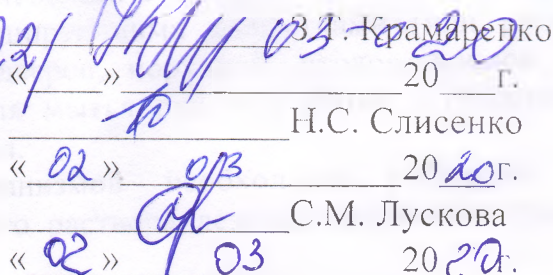 З.Г. Крамаренко 03 20
« » 20 г.
Н.С. Слисенко
« 02 » 03 2020г.
С.М. Лускова
« 02 » 03 2020г.